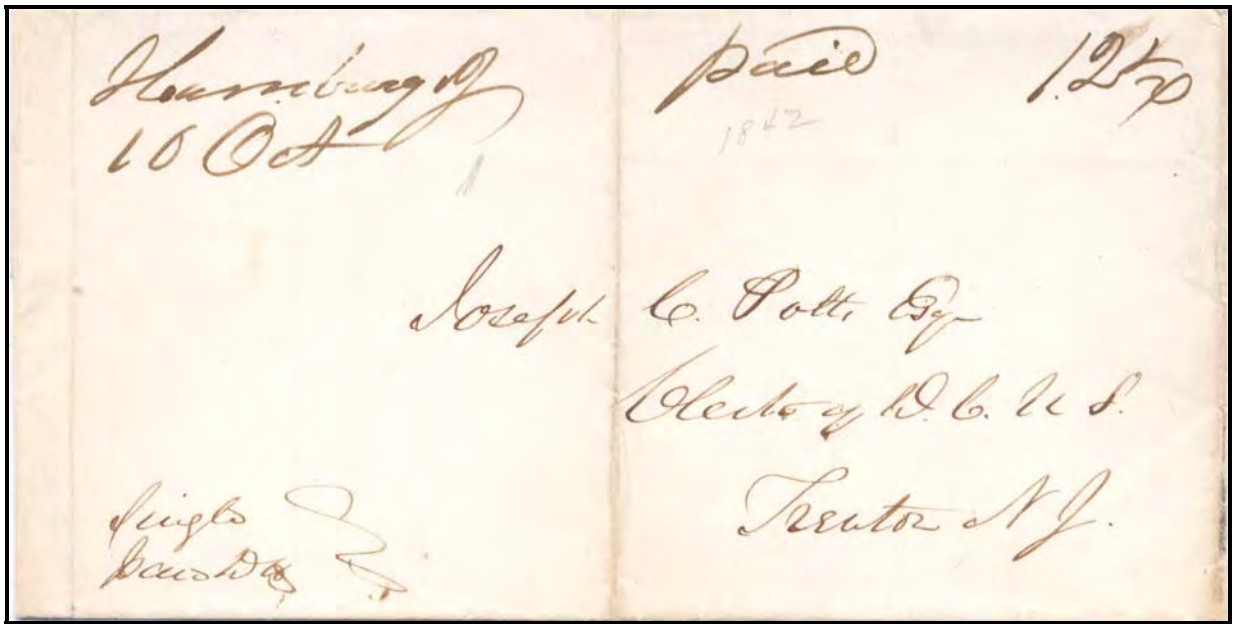 Hamburg NJ paid 12½
10 Oct 1842
Joseph C. Potts Esq
Clerk of D. C. U S.
Trenton N J.
Single